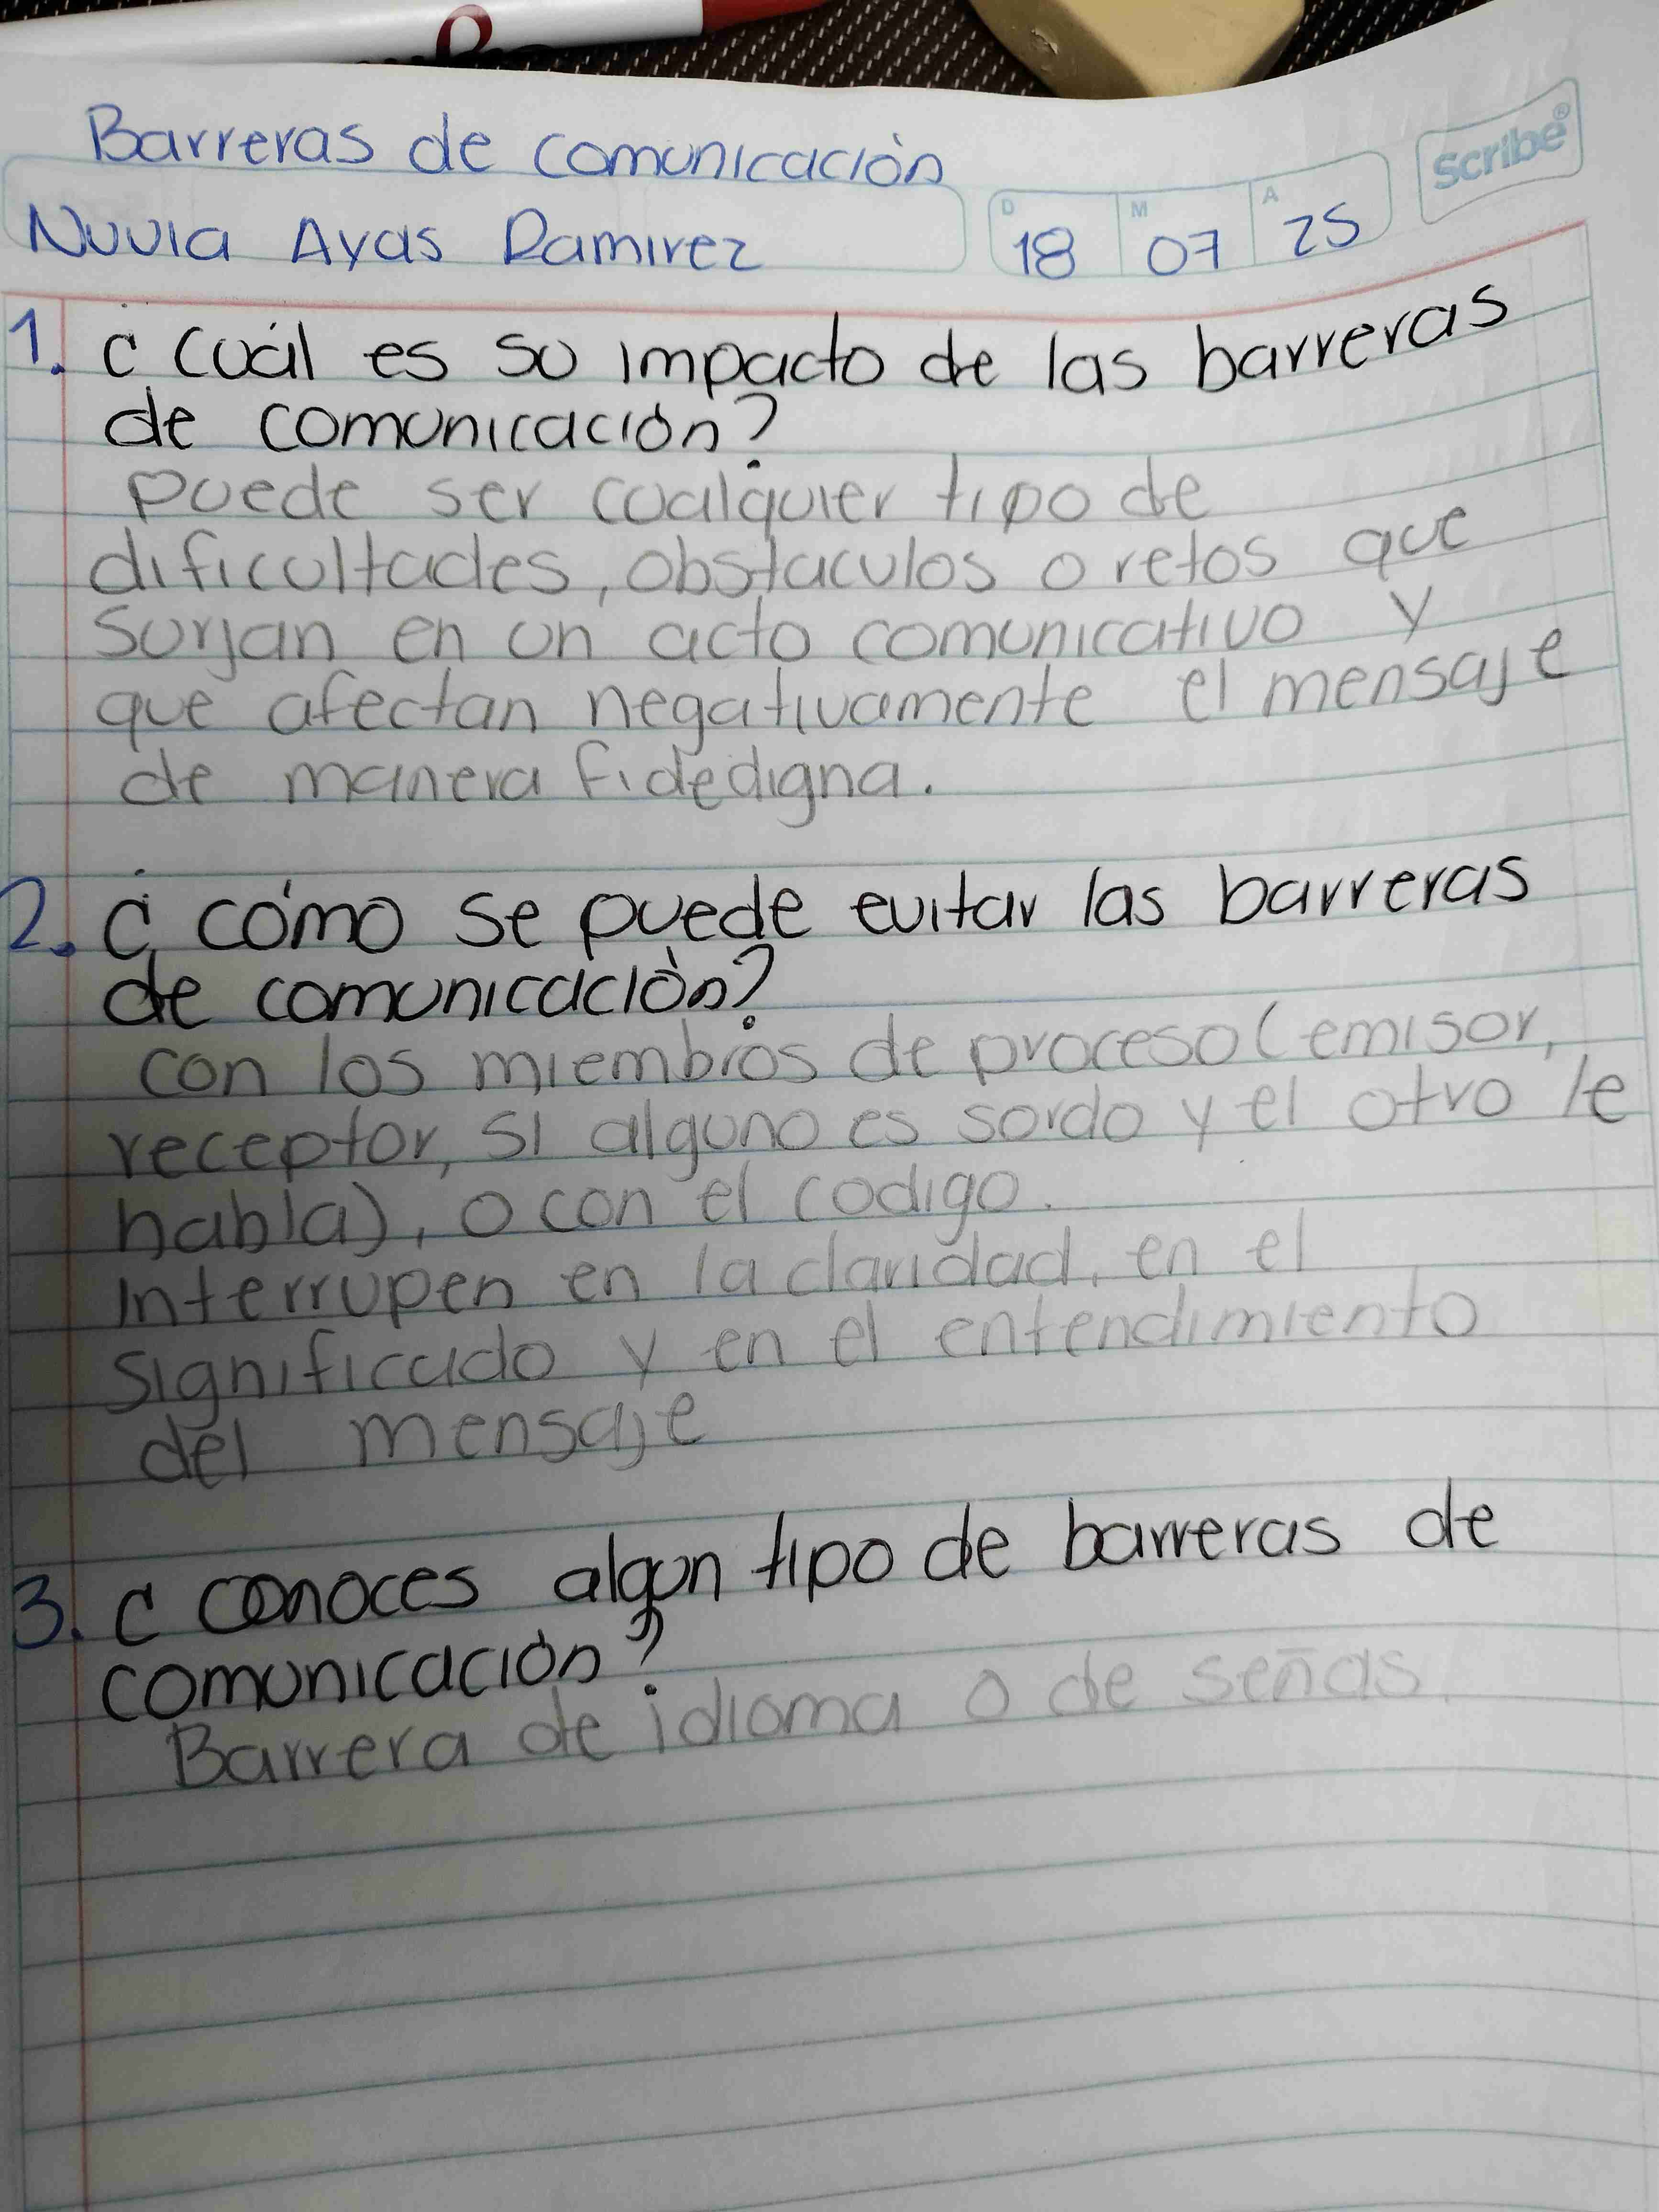 Barreras de comunicación
Scribe®
Nuvia Ayas Ramirez
D 18 M 07 A 25
1. ¿Cuál es su impacto de las barreras
de comunicación?
Puede ser cualquier tipo de
dificultades, obstaculos o retos que
surjan en un acto comunicativo y
que afectan negativamente el mensaje
de manera fidedigna.
2. ¿cómo se puede evitar las barreras
de comunicación?
con los miembros de proceso (emisor,
receptor, si alguno es sordo y el otro le
habla), o con el codigo.
Interrupen en la claridad, en el
significado y en el entendimiento
del mensaje
3. ¿conoces algun tipo de barreras de
comunicación?
Barrera de idioma o de señas.